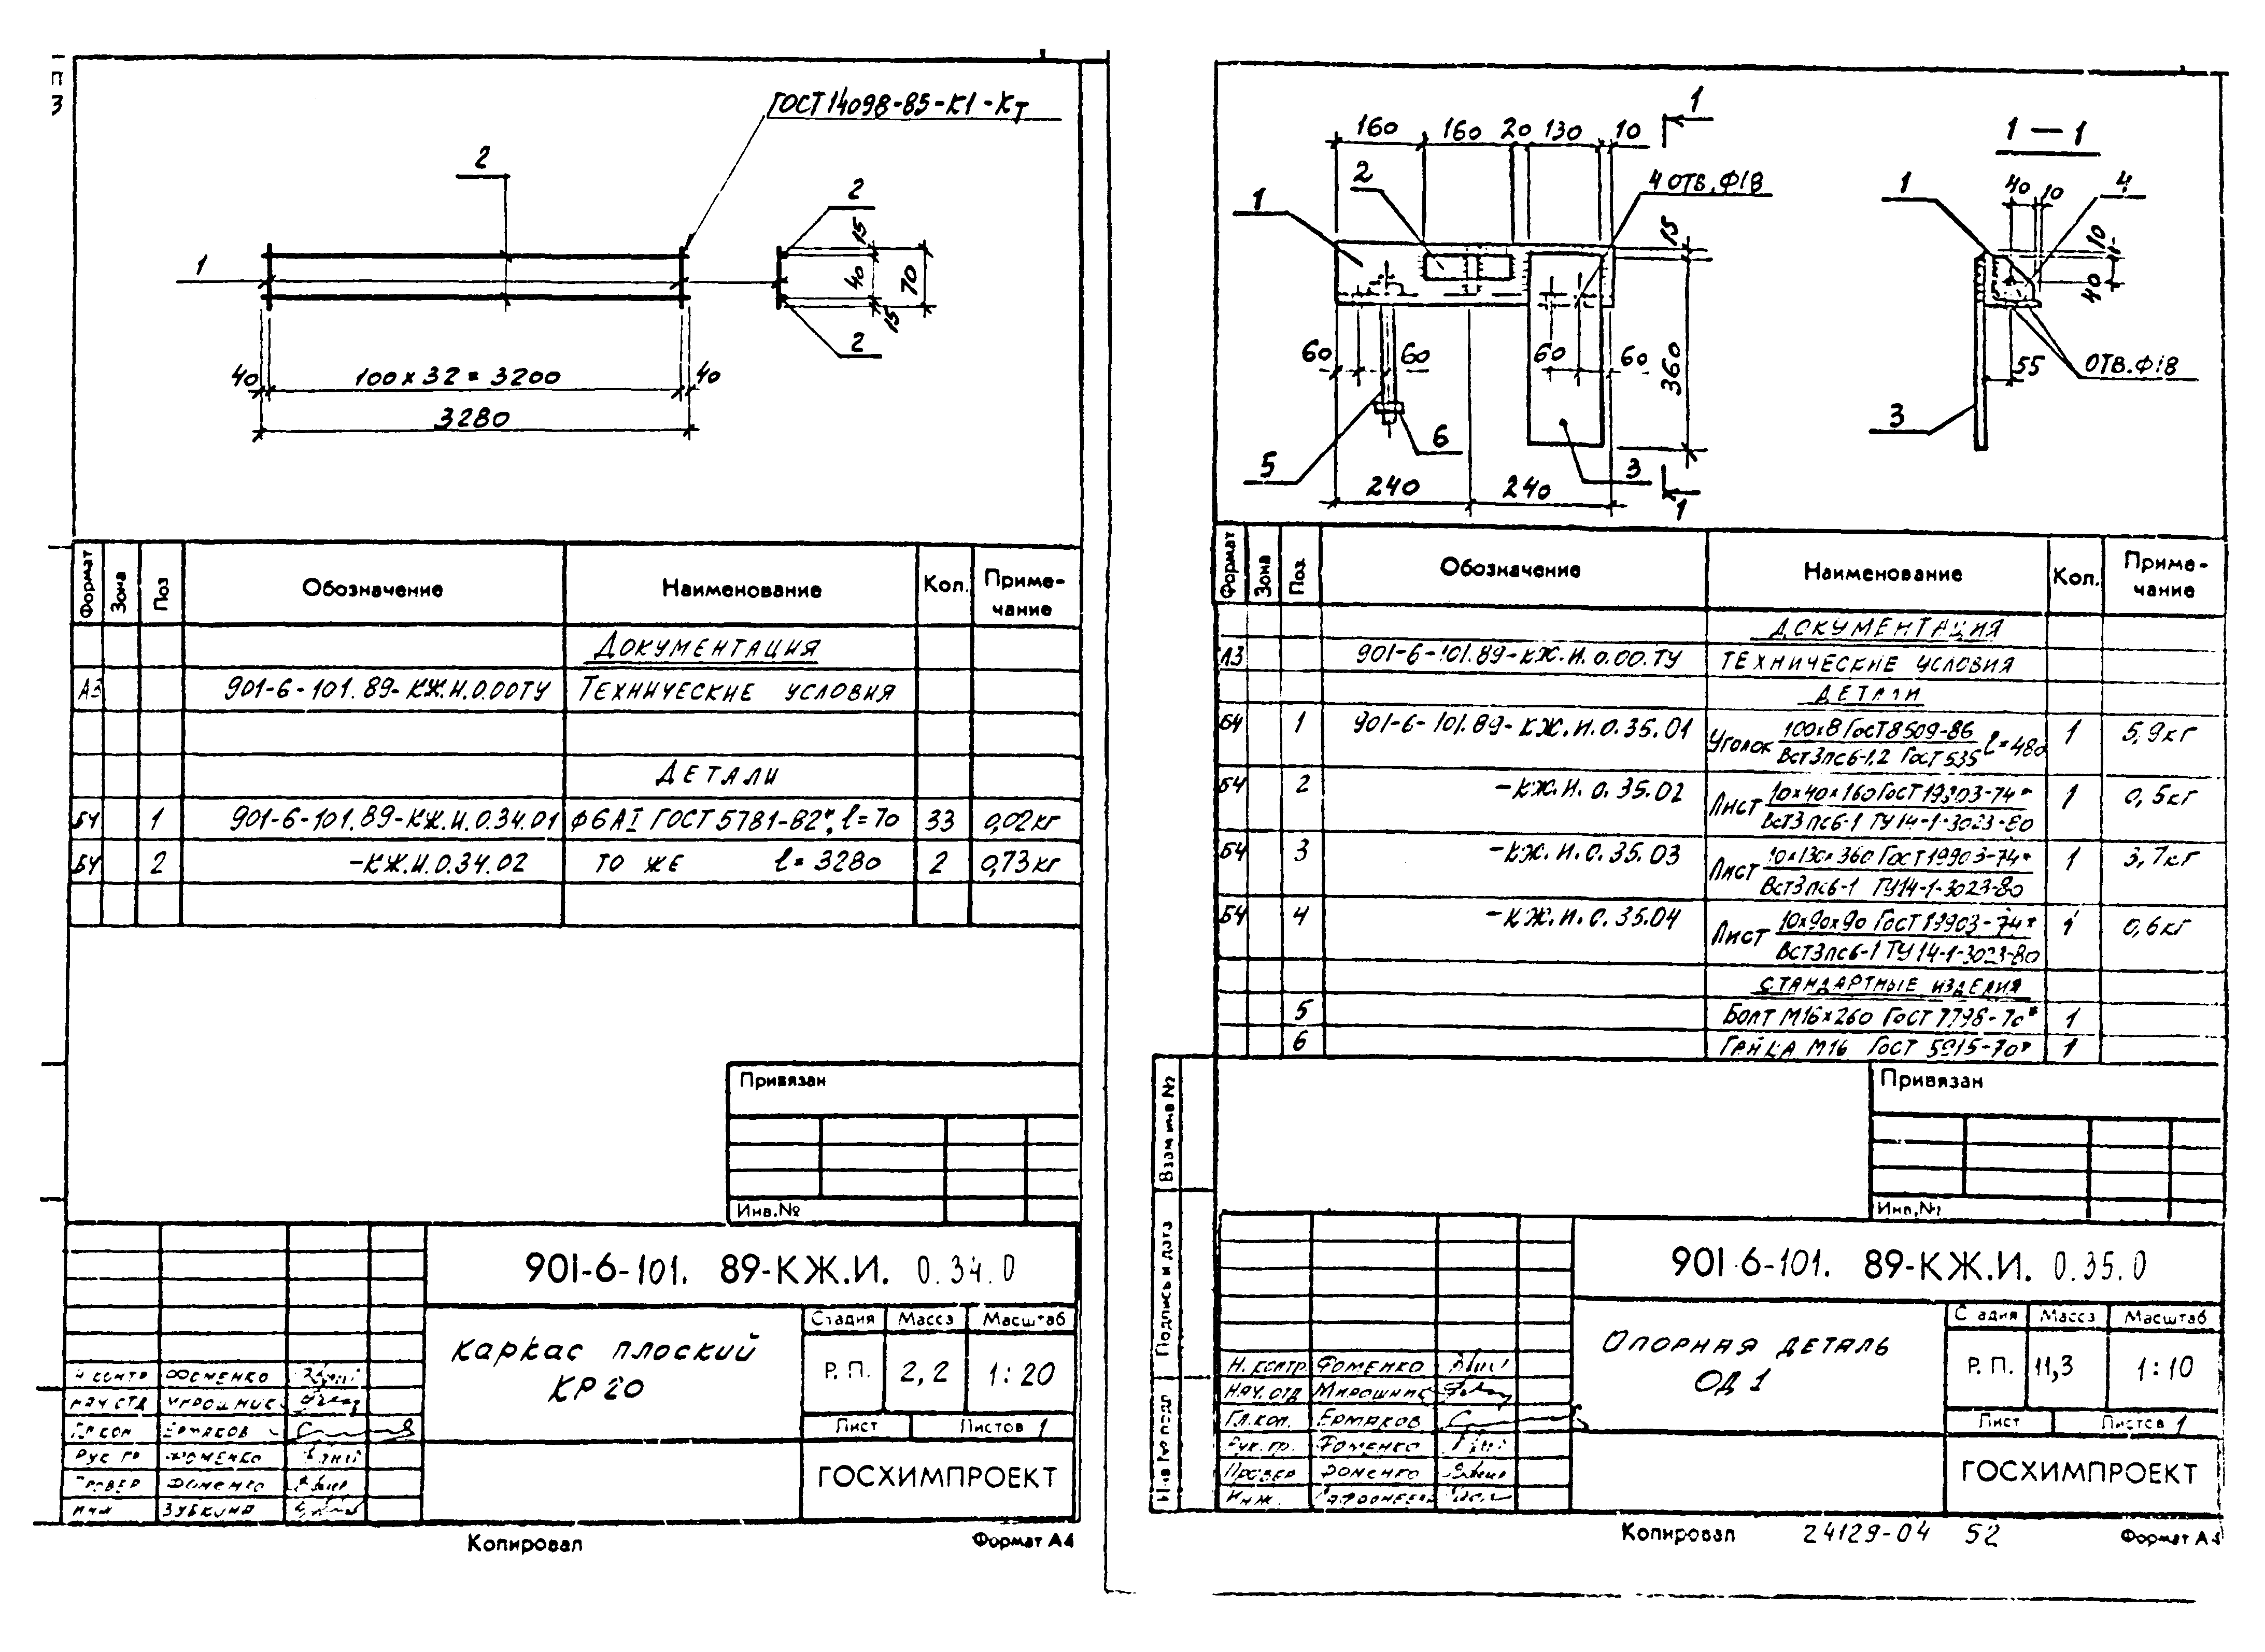 П
3
ГОСТ 14098-85-К1-Кт
2
1
2
15
40
70
15
2
40
100 х 32 = 3200
40
3280
Формат Зона Поз Обозначение Наименование Кол. Приме-
чание
Документация
А3 901-6-101.89-КЖ.И.0.00ТУ Технические условия
Детали
БЧ 1 901-6-101.89-КЖ.И.0.34.01 Ф6АI ГОСТ 5781-82*, l=70 33 0,02кг
БЧ 2 -КЖ.И.0.34.02 то же l=3280 2 0,73кг
Привязан
Инв.№
901-6-101. 89-КЖ.И. 0.34.0
Каркас плоский
КР20
Стадия Масса Масштаб
Р.П. 2,2 1:20
Лист Листов 1
ГОСХИМПРОЕКТ
Н контр Фоменко
Нач отд Мирошник
Гл кон Ермаков
Рук гр Фоменко
Провер Фоменко
Инж Зубкина
Копировал Формат А4
160 160 20 130 10
1
1 — 1
1
2
4 отв. Ф18
15
360
60 60 60 60
5
6
3
240 240
1
1
40 10
4
10
40
55
отв. Ф18
3
Формат Зона Поз. Обозначение Наименование Кол. Приме-
чание
Документация
А3 901-6-101.89-КЖ.И.0.00.ТУ Технические условия
Детали
БЧ 1 901-6-101.89-КЖ.И.0.35.01 Уголок 100х8 ГОСТ 8509-86 l=480 1 5,9кг
Вст3пс6-1,2 ГОСТ 535
БЧ 2 -КЖ.И.0.35.02 Лист 10х40х160 ГОСТ 19903-74* 1 0,5кг
Вст3пс6-1 ТУ14-1-3023-80
БЧ 3 -КЖ.И.0.35.03 Лист 10х130х360 ГОСТ 19903-74* 1 3,7кг
Вст3пс6-1 ТУ14-1-3023-80
БЧ 4 -КЖ.И.0.35.04 Лист 10х90х90 ГОСТ 19903-74* 1 0,6кг
Вст3пс6-1 ТУ14-1-3023-80
Стандартные изделия
5 Болт М16х260 ГОСТ 7798-70* 1
6 Гайка М16 ГОСТ 5915-70* 1
Привязан
Инв.№
Взам инв №
Подпись и дата
Инв № подл
901-6-101. 89-КЖ.И. 0.35.0
Опорная деталь
ОД 1
Стадия Масса Масштаб
Р.П. 11,3 1:10
Лист Листов 1
ГОСХИМПРОЕКТ
Н. контр. Фоменко
Нач. отд Мирошник
Гл. кон. Ермаков
Рук. гр. Фоменко
Провер Фоменко
Инж.
Копировал 24129-04 52 Формат А4